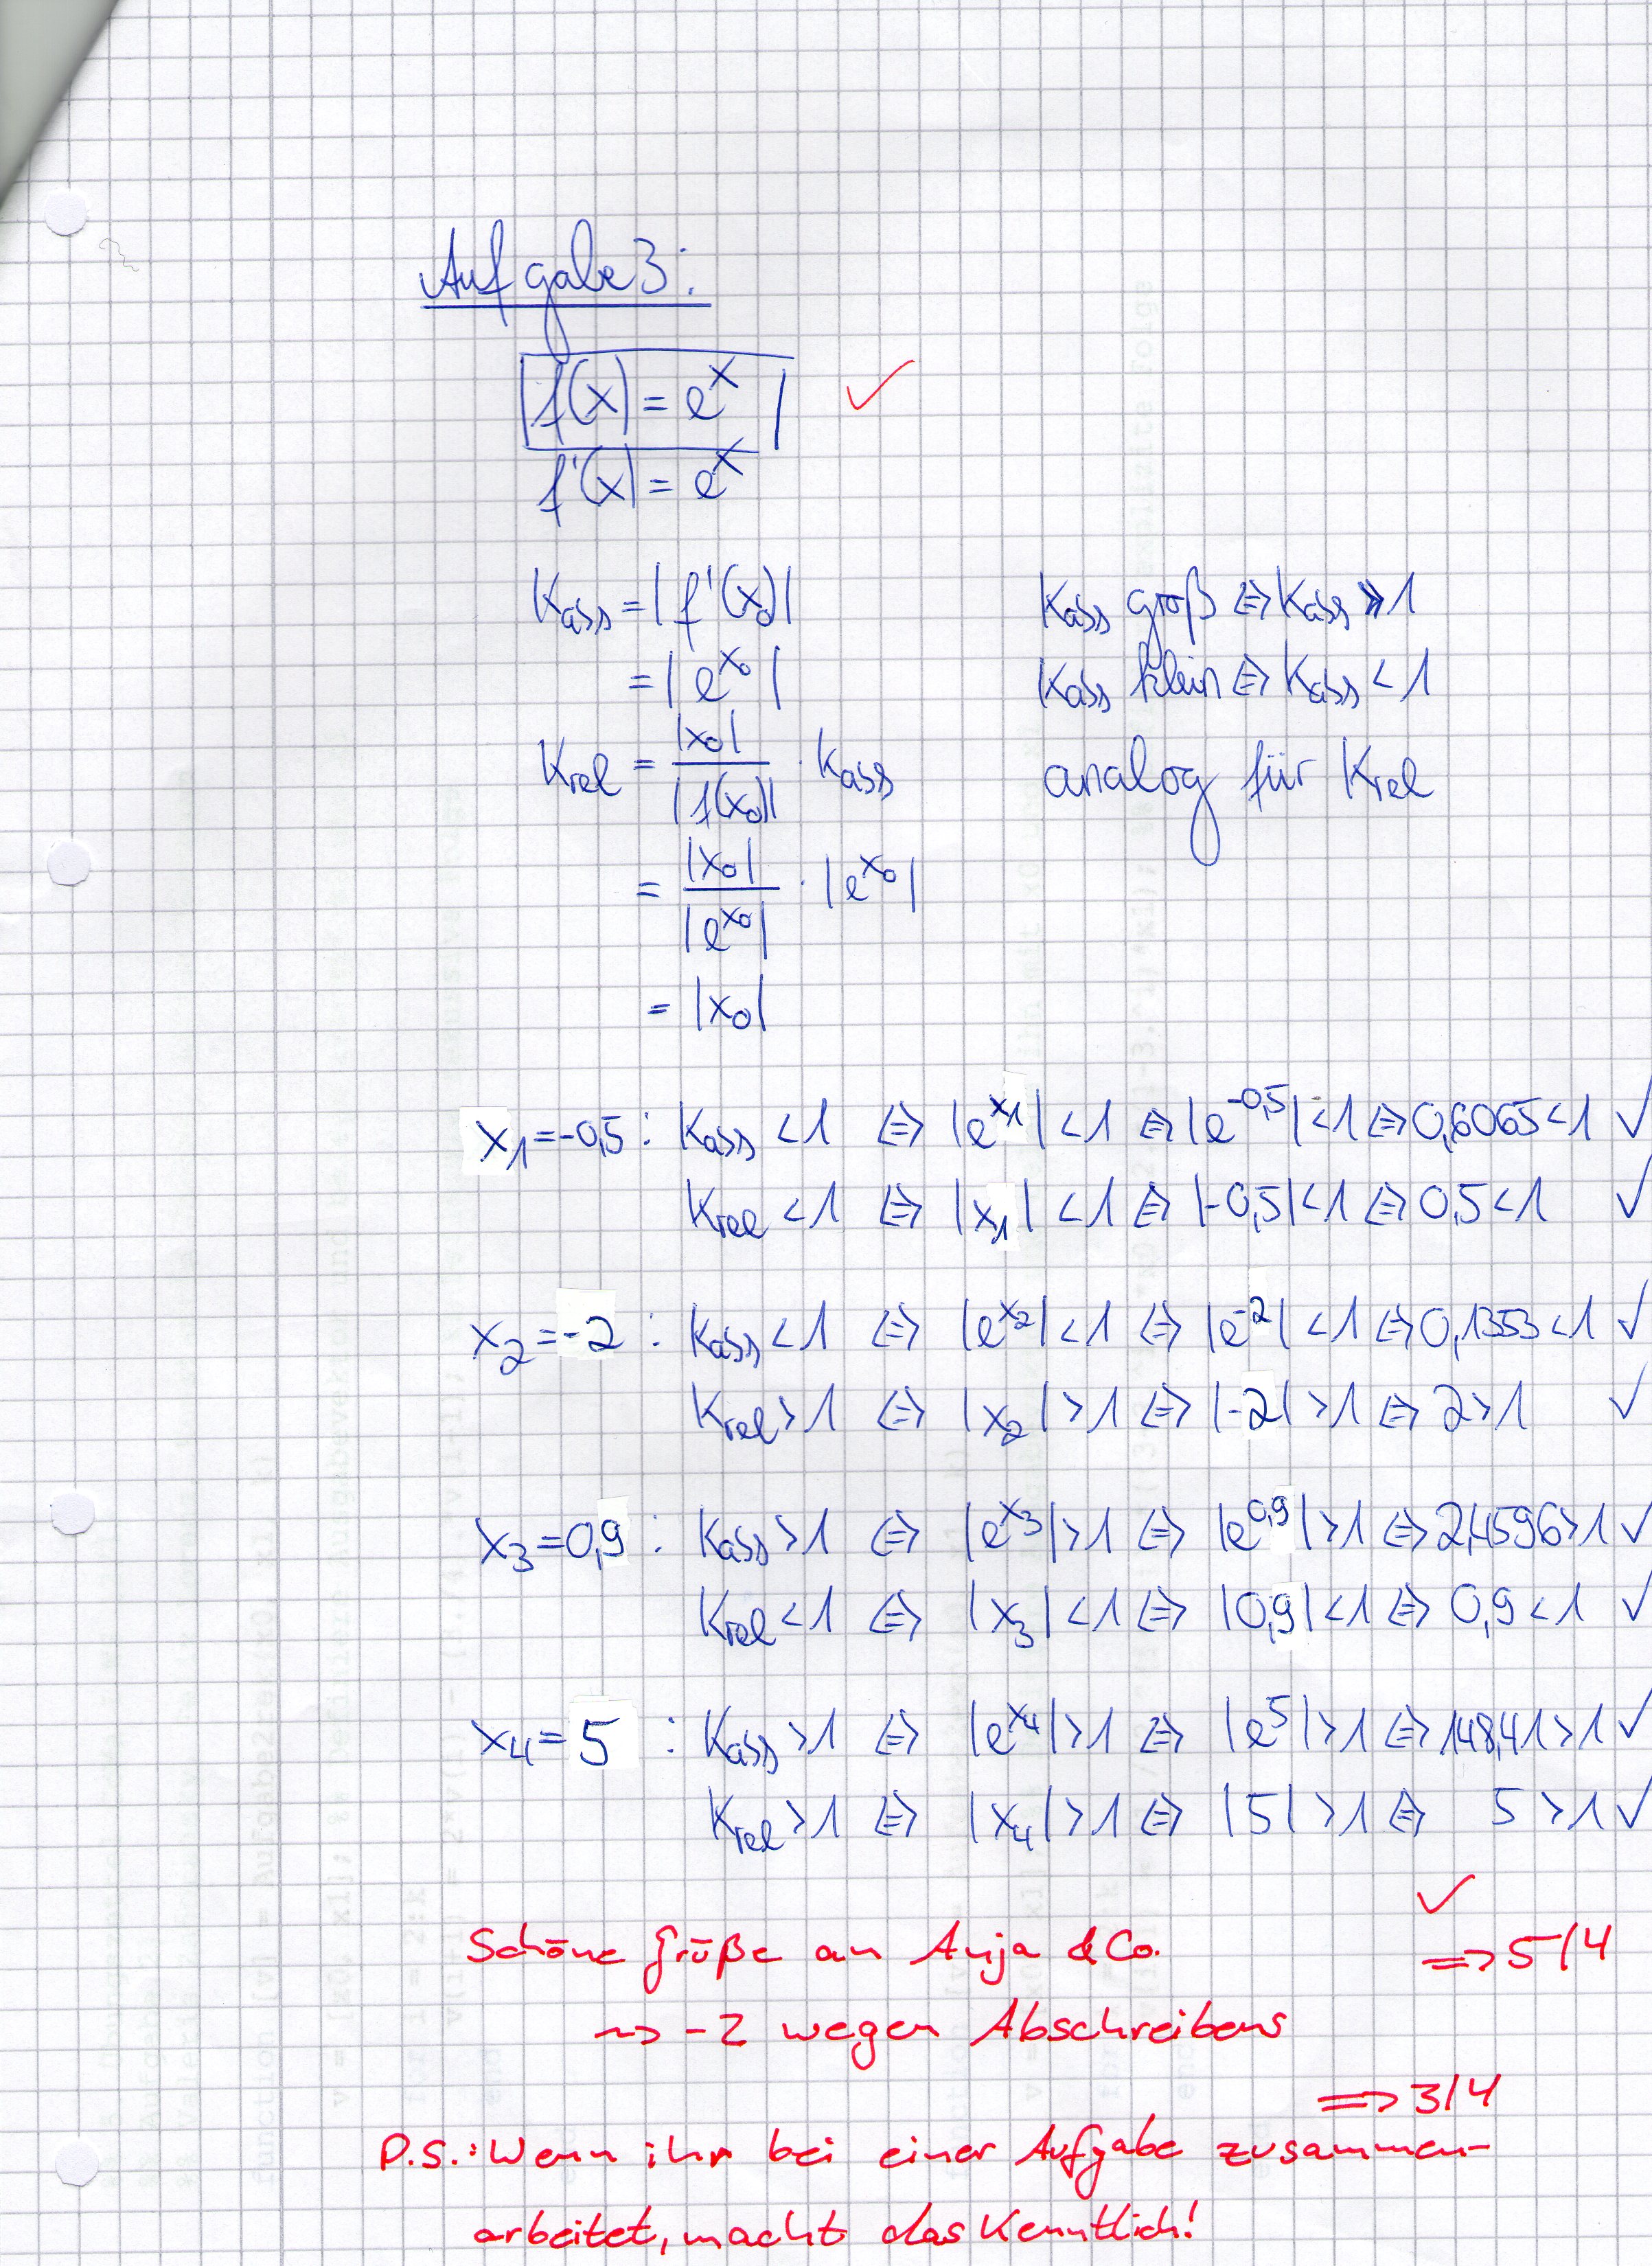 Aufgabe 3:
f(x) = e^x ✓
f'(x) = e^x
K_abs = |f'(x_0)|
K_abs groß ⇔ K_abs ≫ 1
= |e^{x_0}|
K_abs klein ⇔ K_abs < 1
K_rel = |x_0| / |f(x_0)| · K_abs
analog für K_rel
= |x_0| / |e^{x_0}| · |e^{x_0}|
= |x_0|
x_1 = -0,5 : K_abs < 1 ⇔ |e^{x_1}| < 1 ⇔ |e^{-0,5}| < 1 ⇔ 0,6065 < 1 ✓
K_rel < 1 ⇔ |x_1| < 1 ⇔ |-0,5| < 1 ⇔ 0,5 < 1 ✓
x_2 = -2 : K_abs < 1 ⇔ |e^{x_2}| < 1 ⇔ |e^{-2}| < 1 ⇔ 0,1353 < 1 ✓
K_rel > 1 ⇔ |x_2| > 1 ⇔ |-2| > 1 ⇔ 2 > 1 ✓
x_3 = 0,9 : K_abs > 1 ⇔ |e^{x_3}| > 1 ⇔ |e^{0,9}| > 1 ⇔ 2,4596 > 1 ✓
K_rel < 1 ⇔ |x_3| < 1 ⇔ |0,9| < 1 ⇔ 0,9 < 1 ✓
x_4 = 5 : K_abs > 1 ⇔ |e^{x_4}| > 1 ⇔ |e^5| > 1 ⇔ 148,41 > 1 ✓
K_rel > 1 ⇔ |x_4| > 1 ⇔ |5| > 1 ⇔ 5 > 1 ✓
✓
Schöne Grüße an Anja & Co. ⇒ 5/4
⇝ -2 wegen Abschreibens
⇒ 3/4
P.S.: Wenn ihr bei einer Aufgabe zusammen-
arbeitet, macht das Kenntlich!